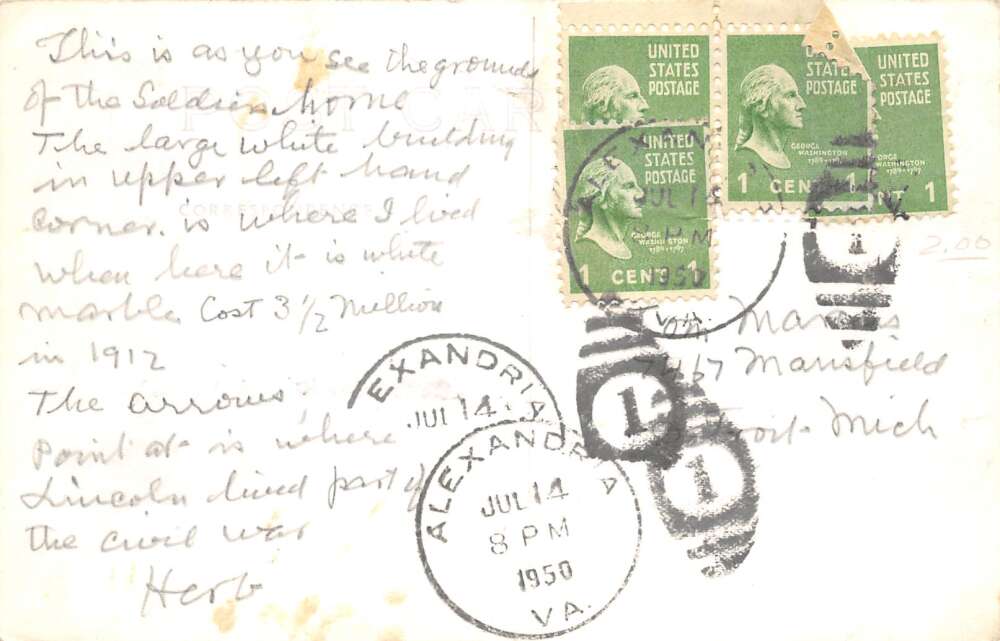 This is as you see the grounds
of the Soldiers home
The large white building
in upper left hand
corner. is where I lived
when here it is white
marble Cost 3 1/2 Million
in 1912
The arrows
Point at is where
Lincoln lived part of
the civil war
Herb
POST CAR
CORRESPONDENCE
UNITED
STATES
POSTAGE
UNITED
STATES
POSTAGE
GEORGE
WASHINGTON
1789-1797
1 CENT 1
UNITED
STATES
POSTAGE
GEORGE
WASHINGTON
1789-1797
1 CENT 1
UNITED
STATES
POSTAGE
ORGE
WASHINGTON
1789-1797
NT 1
ALEXAN
JUL 14
PM
1950
VA.
2.00
Mansfield
Mich
1
1
1
EXANDRIA
JUL 14
ALEXANDRIA
JUL 14
8 PM
1950
VA.